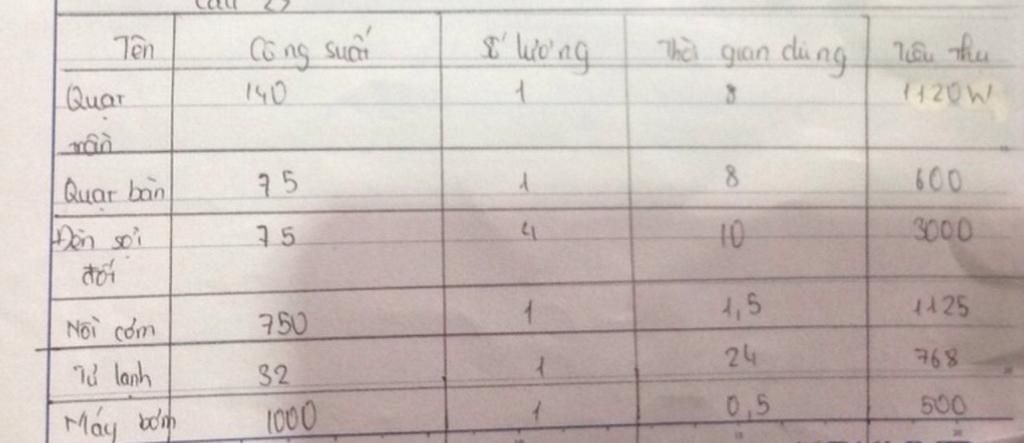 Câu 2)
Tên Công suất Số lượng Thời gian dùng Tiêu thụ
Quạt trần 140 1 8 1120W
Quạt bàn 75 1 8 600
Đèn sợi đốt 75 4 10 3000
Nồi cơm 750 1 1,5 1125
Tủ lạnh 32 1 24 768
Máy bơm 1000 1 0,5 500